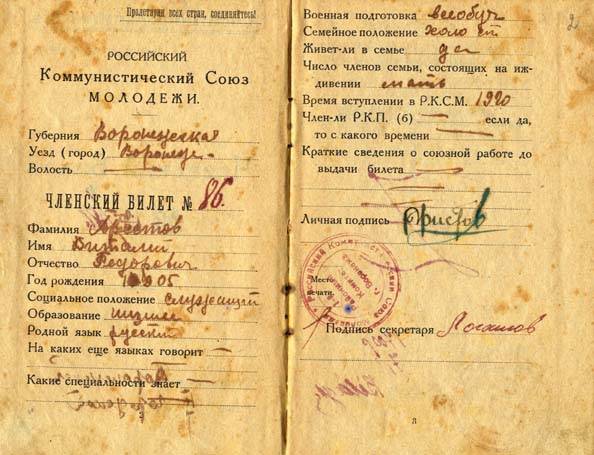 Пролетарии всех стран, соединяйтесь!
РОССИЙСКИЙ
Коммунистический Союз
МОЛОДЕЖИ.
Губерния Воронежская
Уезд (город) Воронеж
Волость —
ЧЛЕНСКИЙ БИЛЕТ № 86.
Фамилия Христов
Имя Виталий
Отчество Федорович
Год рождения 1905
Социальное положение служащий
Образование низшее
Родной язык русский
На каких еще языках говорит —
Какие специальности знает —
2
Военная подготовка всеобуч
Семейное положение холост
Живет-ли в семье да
Число членов семьи, состоящих на иж-
дивении мать
Время вступления в Р.К.С.М. 1920
Член-ли Р.К.П. (б) — если да,
то с какого времени —
Краткие сведения о союзной работе до
выдачи билета —
Личная подпись Христов
Место
печати.
Российский Коммунистический Союз
г. Воронежа
Подпись секретаря
3